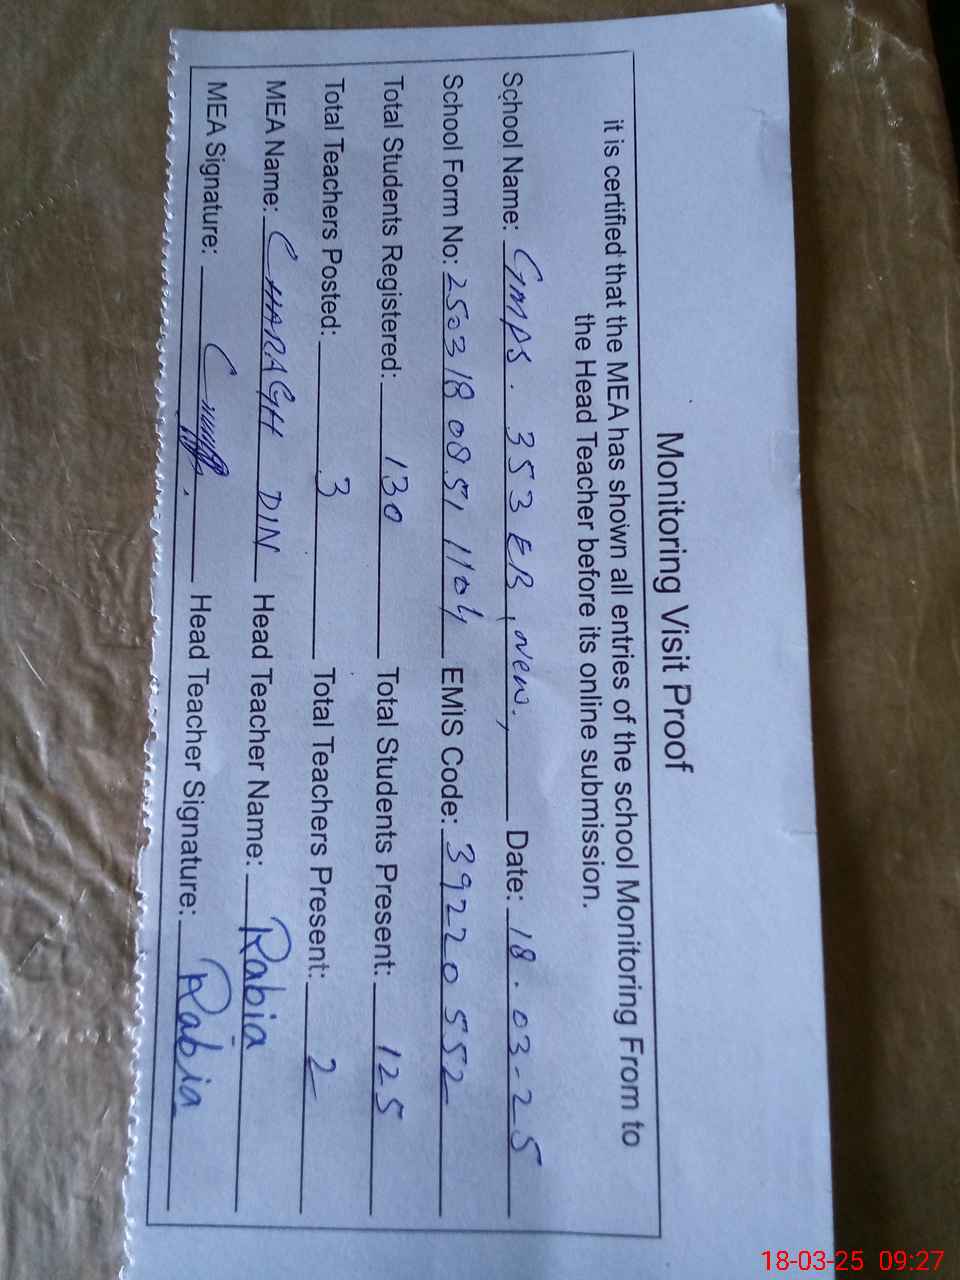 Monitoring Visit Proof
it is certified that the MEA has shown all entries of the school Monitoring From to
the Head Teacher before its online submission.
School Name: GMPS. 353 EB, New., Date: 18.03-25
School Form No: 250318 0851 1104 EMIS Code: 39220552
Total Students Registered: 130 Total Students Present: 125
Total Teachers Posted: 3 Total Teachers Present: 2
MEA Name: CHARAGH DIN Head Teacher Name: Rabia
MEA Signature: Head Teacher Signature: Rabia
18-03-25 09:27